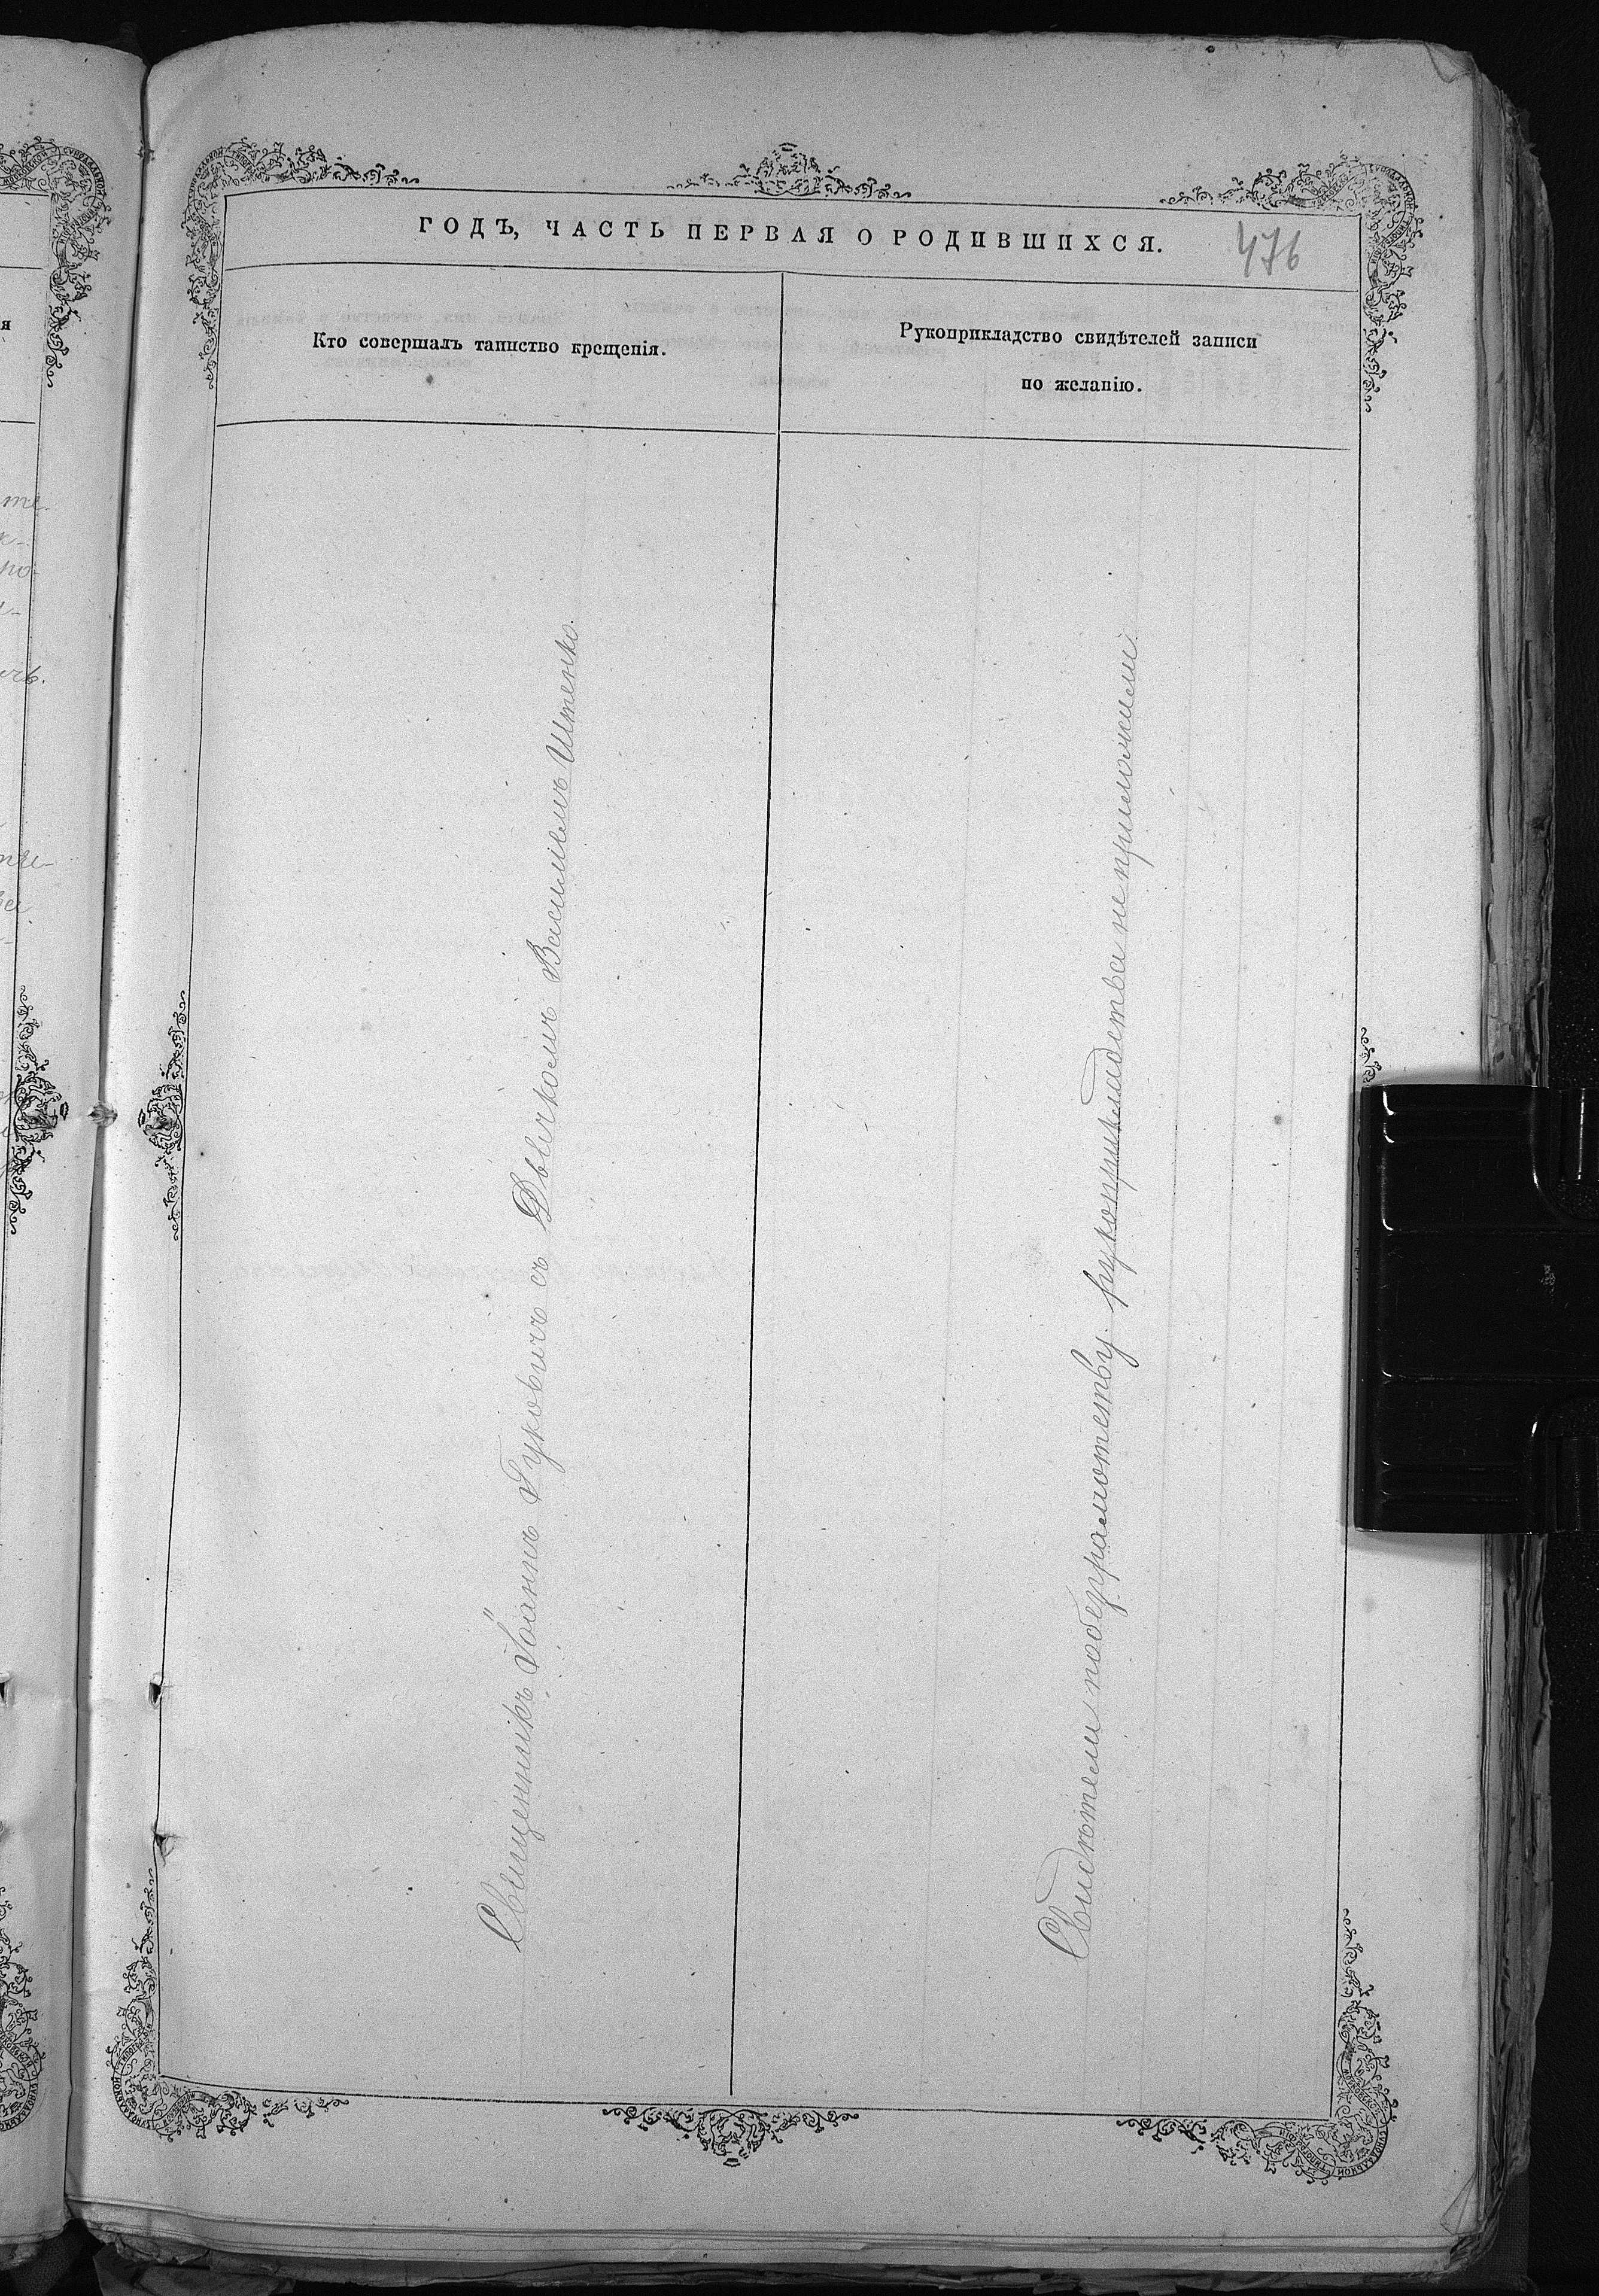 ГОДЪ, ЧАСТЬ ПЕРВАЯ О РОДИВШИХСЯ.
476
Кто совершалъ таинство крещенія.
Рукоприкладство свидѣтелей записи
по желанію.
Священникъ Іоаннъ Гуковичъ съ Дьячкомъ Василіемъ Штенко.
Свидѣтели по безграмотству рукоприкладства не приложили